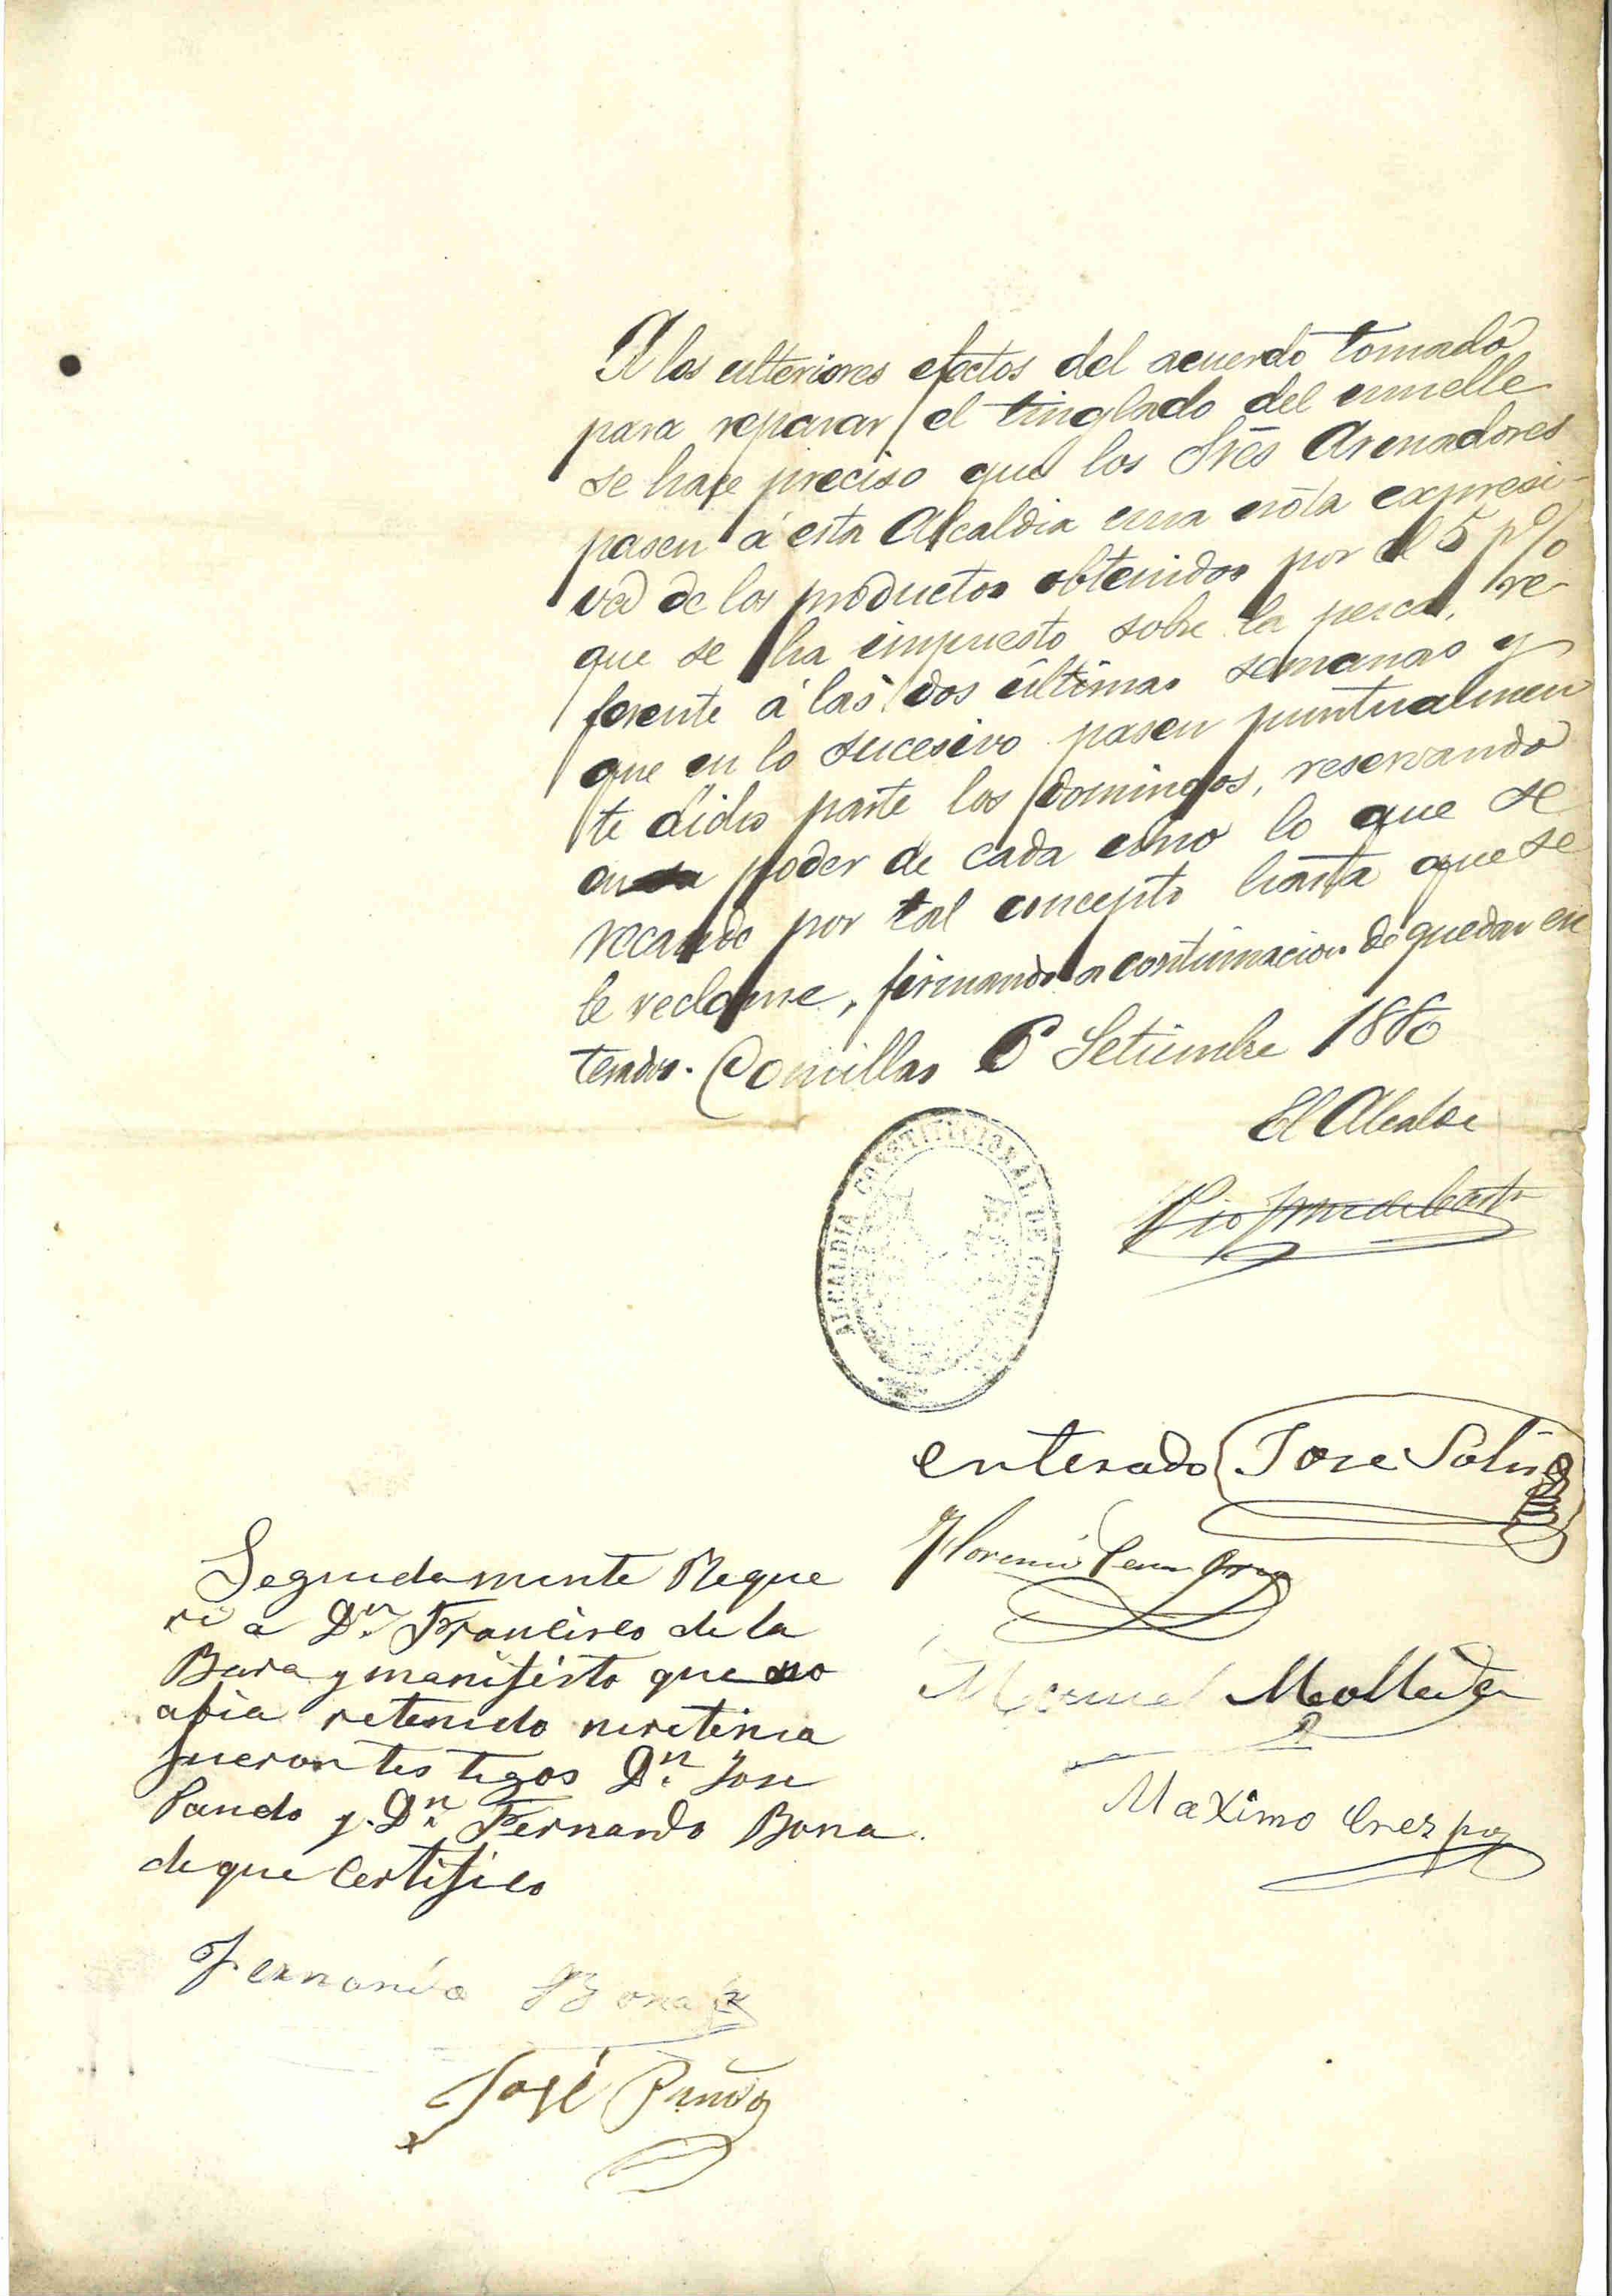 A los ulteriores efectos del acuerdo tomado
para reparar el tinglado del muelle
se hace preciso que los Sres Armadores
pasen á esta Alcaldia una nota expresi-
va de los productos obtenidos por el 5 p%
que se ha impuesto sobre la pesca, re-
ferente á las dos últimas semanas y
que en lo sucesivo pasen puntualmen
te dicho parte los domingos, reservando
en poder de cada uno lo que se
recaude por tal concepto hasta que se
le reclame, firmando a continuacion de quedar en
terados. Comillas 6 Setiembre 1880
El Alcalde
Pio
ALCALDIA CONSTITUCIONAL DE COMILLAS
enterado Jose Solis
Manuel Molleda
Maximo Crespo
Seguidamente Reque
ri a Dn. Francisco de la
Bara y manifesto que no
abia retenido ni retenia
fueron testegos Dn. Jose
Pando y Dn. Fernando Bona
de que Certifico
Fernando Bona
José Pando